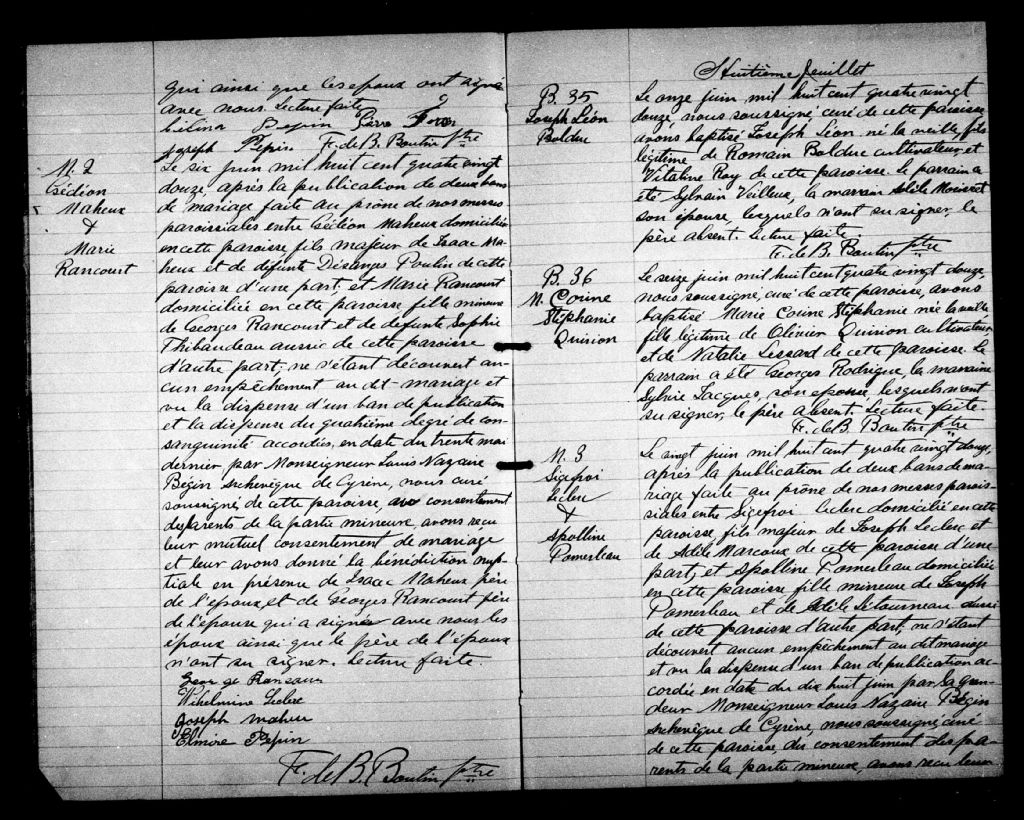 qui ainsi que les epoux ont signé
avec nous. Lecture faite
Célina Pepin
Joseph Pépin F. de B. Boutin ptre
M. 2
Gédion
Maheux
&
Marie
Rancourt
Le six juin mil huit cent quatre vingt
douze, après la publication de deux bans
de mariage faite au prône de nos messes
paroissiales entre Gédéon Maheux domicilié
en cette paroisse, fils majeur de Isaac Ma-
heux et de défunte Désanges Poulin de cette
paroisse d'une part, et Marie Rancourt
domiciliée en cette paroisse fille mineure
de Georges Rancourt et de defunte Sophie
Thibaudeau aussi de cette paroisse
d'autre part, ne s'étant découvert au-
cun empêchement au dt- mariage et
vu la dispense d'un ban de publication
et la dispense du quatrième degré de con-
sanguinité accordées, en date du trente mai
dernier, par Monseigneur Louis Nazaire
Begin Archevêque de Cyrène, nous curé
soussigné de cette paroisse, consentement
des parents de la partie mineure, avons recu
leur mutuel consentement de mariage
et leur avons donné la bénédiction nup-
tiale en présence de Isaac Maheux père
de l'époux et de Georges Rancourt père
de l'épouse qui a signé avec nous les
époux ainsi que le père de l'époux
n'ont su signer. Lecture faite.
George Rancour
Wilhelmine Leclerc
Joseph maheu
Elmire Pépin
F. de B. Boutin ptre
Huitième feuillet
B. 35
Joseph Léon
Bolduc
Le onze juin mil huit cent quatre vingt
douze, nous soussigné, curé de cette paroisse,
avons baptisé Joseph Léon né la veille fils
légitime de Romain Bolduc cultivateur et
Vitaline Roy de cette paroisse. Le parrain a
été Sylvain Veilleux, la marraine Adèle Morisset
son épouse, lesquels n'ont su signer, le
père absent. Lecture faite.
F. de B. Boutin ptre
B. 36
M. Corine
Stéphanie
Quirion
Le seize juin mil huit cent quatre vingt douze,
nous soussigné, curé de cette paroisse, avons
baptisé Marie Corine Stéphanie née la veille
fille légitime de Olivier Quirion cultivateur
et de Natalie Lessard de cette paroisse. Le
parrain a été Georges Rodrigue, la marraine
Sylvie Jacques, son epouse, lesquels n'ont
su signer, le père absent. Lecture faite.
F. de B. Boutin ptre
M. 3
Sigefroi
Leclerc
&
Apolline
Pomerleau
Le vingt juin mil huit cent quatre vingt douze,
après la publication de deux bans de ma-
riage faite au prône de nos messes parois-
siales entre Sigefroi Leclerc domicilié en cette
paroisse, fils majeur de Joseph Leclerc et
de Adèle Marcoux de cette paroisse d'une
part, et Apolline Pomerleau domiciliée
en cette paroisse fille mineure de Joseph
Pomerleau et de Adèle Létourneau aussi
de cette paroisse d'autre part, ne s'étant
découvert aucun empêchement au dit mariage
et vu la dispense d'un ban de publication ac-
cordée en date du dix huit juin par Sa Gran-
deur Monseigneur Louis Nazaire Bégin
Archevêque de Cyrène, nous soussigné curé
de cette paroisse, du consentement des pa-
rents de la partie mineure, avons recu leur